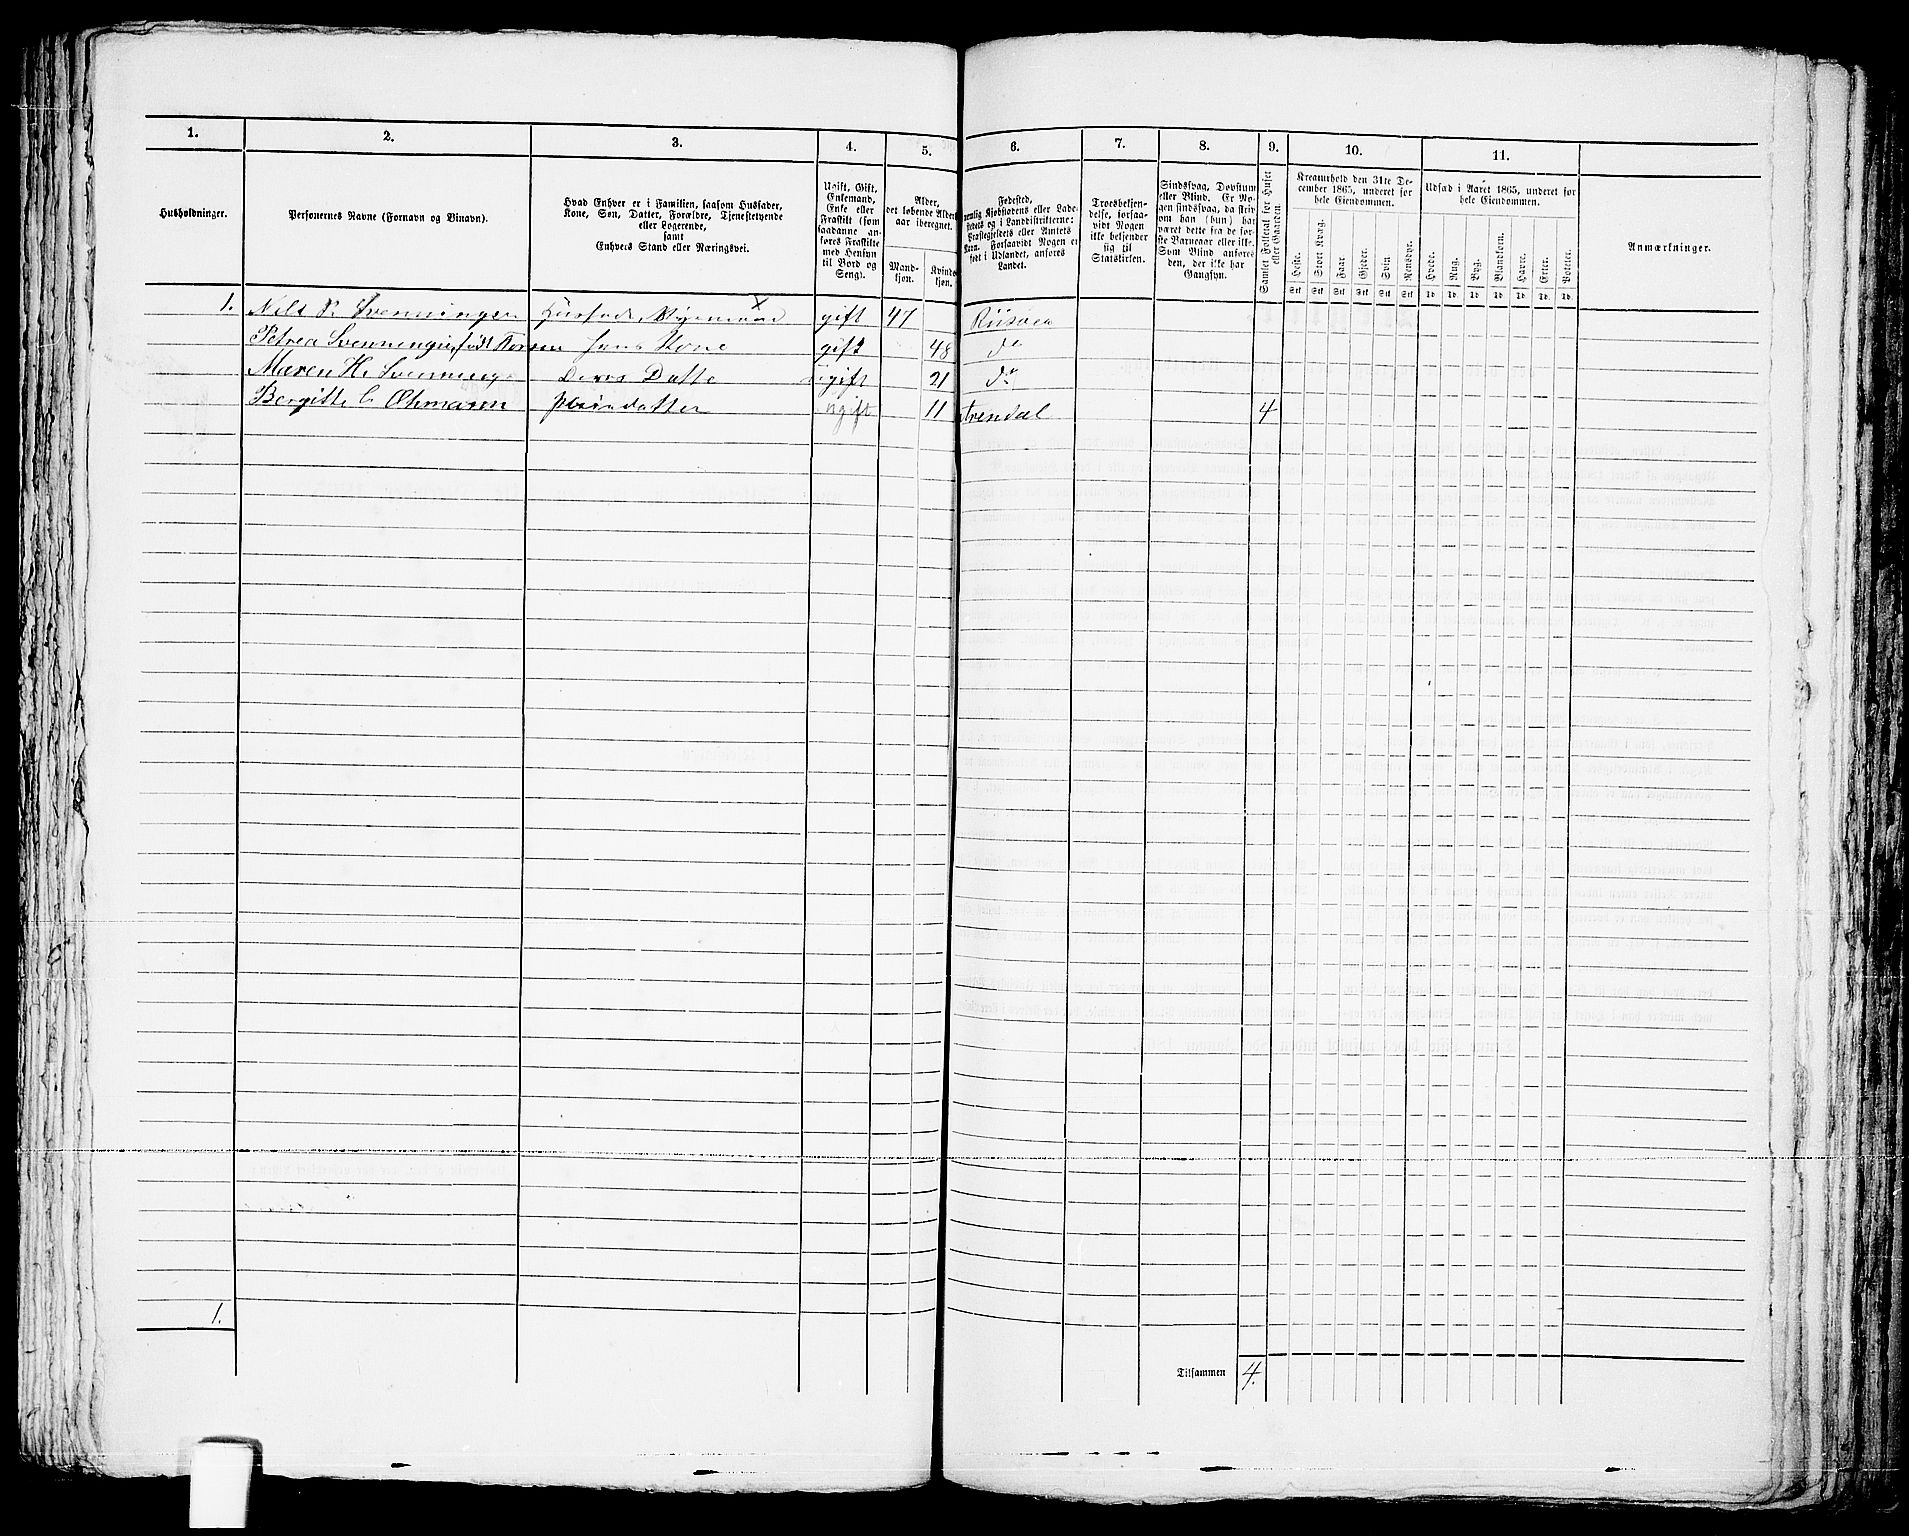 1. 2. 3. 4. 5. 6. 7. 8. 9. 10. 11.
Husholdninger.
Personernes Navne (Fornavn og Binavn).
Hvad Enhver er i Familien, saasom Husfader,
Kone, Søn, Datter, Forældre, Tjenestetyende
eller Logerende,
samt
Enhvers Stand eller Næringsvei.
Ugift, Gift,
Enkemand,
Enke eller
Fraskilt (som
saadanne an-
føres Fraskilte
med Hensyn
til Bord og
Seng).
Alder,
det løbende Alders-
aar iberegnet.
Mand-
kjøn.
Kvinde-
kjøn.
Fødested,
nemlig Kjøbstadens eller Lade-
stedets og i Landdistrikterne:
Præstegjeldets eller Amtets
Navn. Forsaavidt Nogen er
født i Udlandet, anføres
Landet.
Troesbekjen-
delse, forsaa-
vidt Nogen
ikke bekjender
sig til
Statskirken.
Sindssvag, Døvstum
eller Blind. Er No-
gen sindssvag, da skriv
om han (hun) har
været dette fra de før-
ste Barneaar eller ikke.
Som Blind anføres
den, der ikke har
Gangsyn.
Samlet Folketal for Huset
eller Gaarden.
Kreaturhold den 31te De-
cember 1865, underet for
hele Eiendommen.
Heste. Stort Kvæg. Faar Gjeder. Svin. Rensdyr.
Stk Stk Stk Stk Stk Stk
Udsæd i Aaret 1865, underet for
hele Eiendommen.
Hvede. Rug. Byg. Blandkorn. Havre. Erter. Poteter.
Td. Td. Td. Td. Td. Td. Td.
Anmærkninger.
1. Nils Svenningsen gift 47 Riisøer
Petrea Svenningsen født hans Kone gift 48 do
Maren H. Svennings Deres Datte ugift 21 do
Bergitte C Øhmann Pleiedatter ugift 11 Arendal 4
1.
Tilsammen 4.